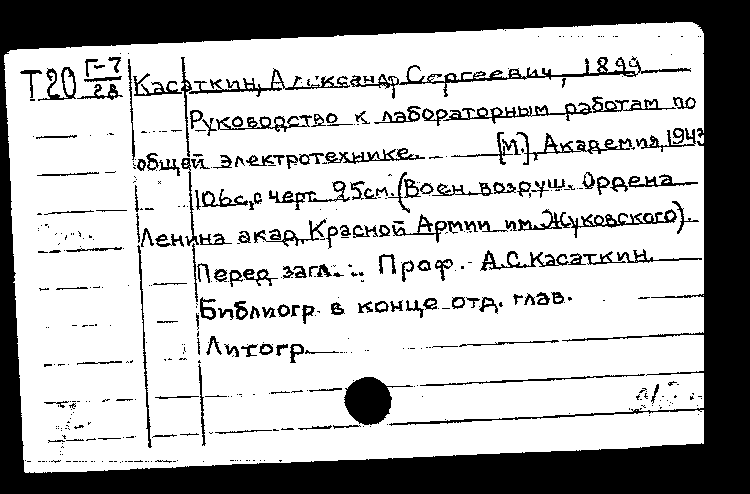 Т20 Г-7/28 Касаткин, Александр Сергеевич, 1899
Руководство к лабораторным работам по
общей электротехнике. [М.], Академия, 1943
106с, с черт. 25см. (Воен. воздуш. Ордена
Ленина акад. Красной Армии им. Жуковского).
Перед загл.: Проф. А.С. Касаткин.
Библиогр. в конце отд. глав.
Литогр.